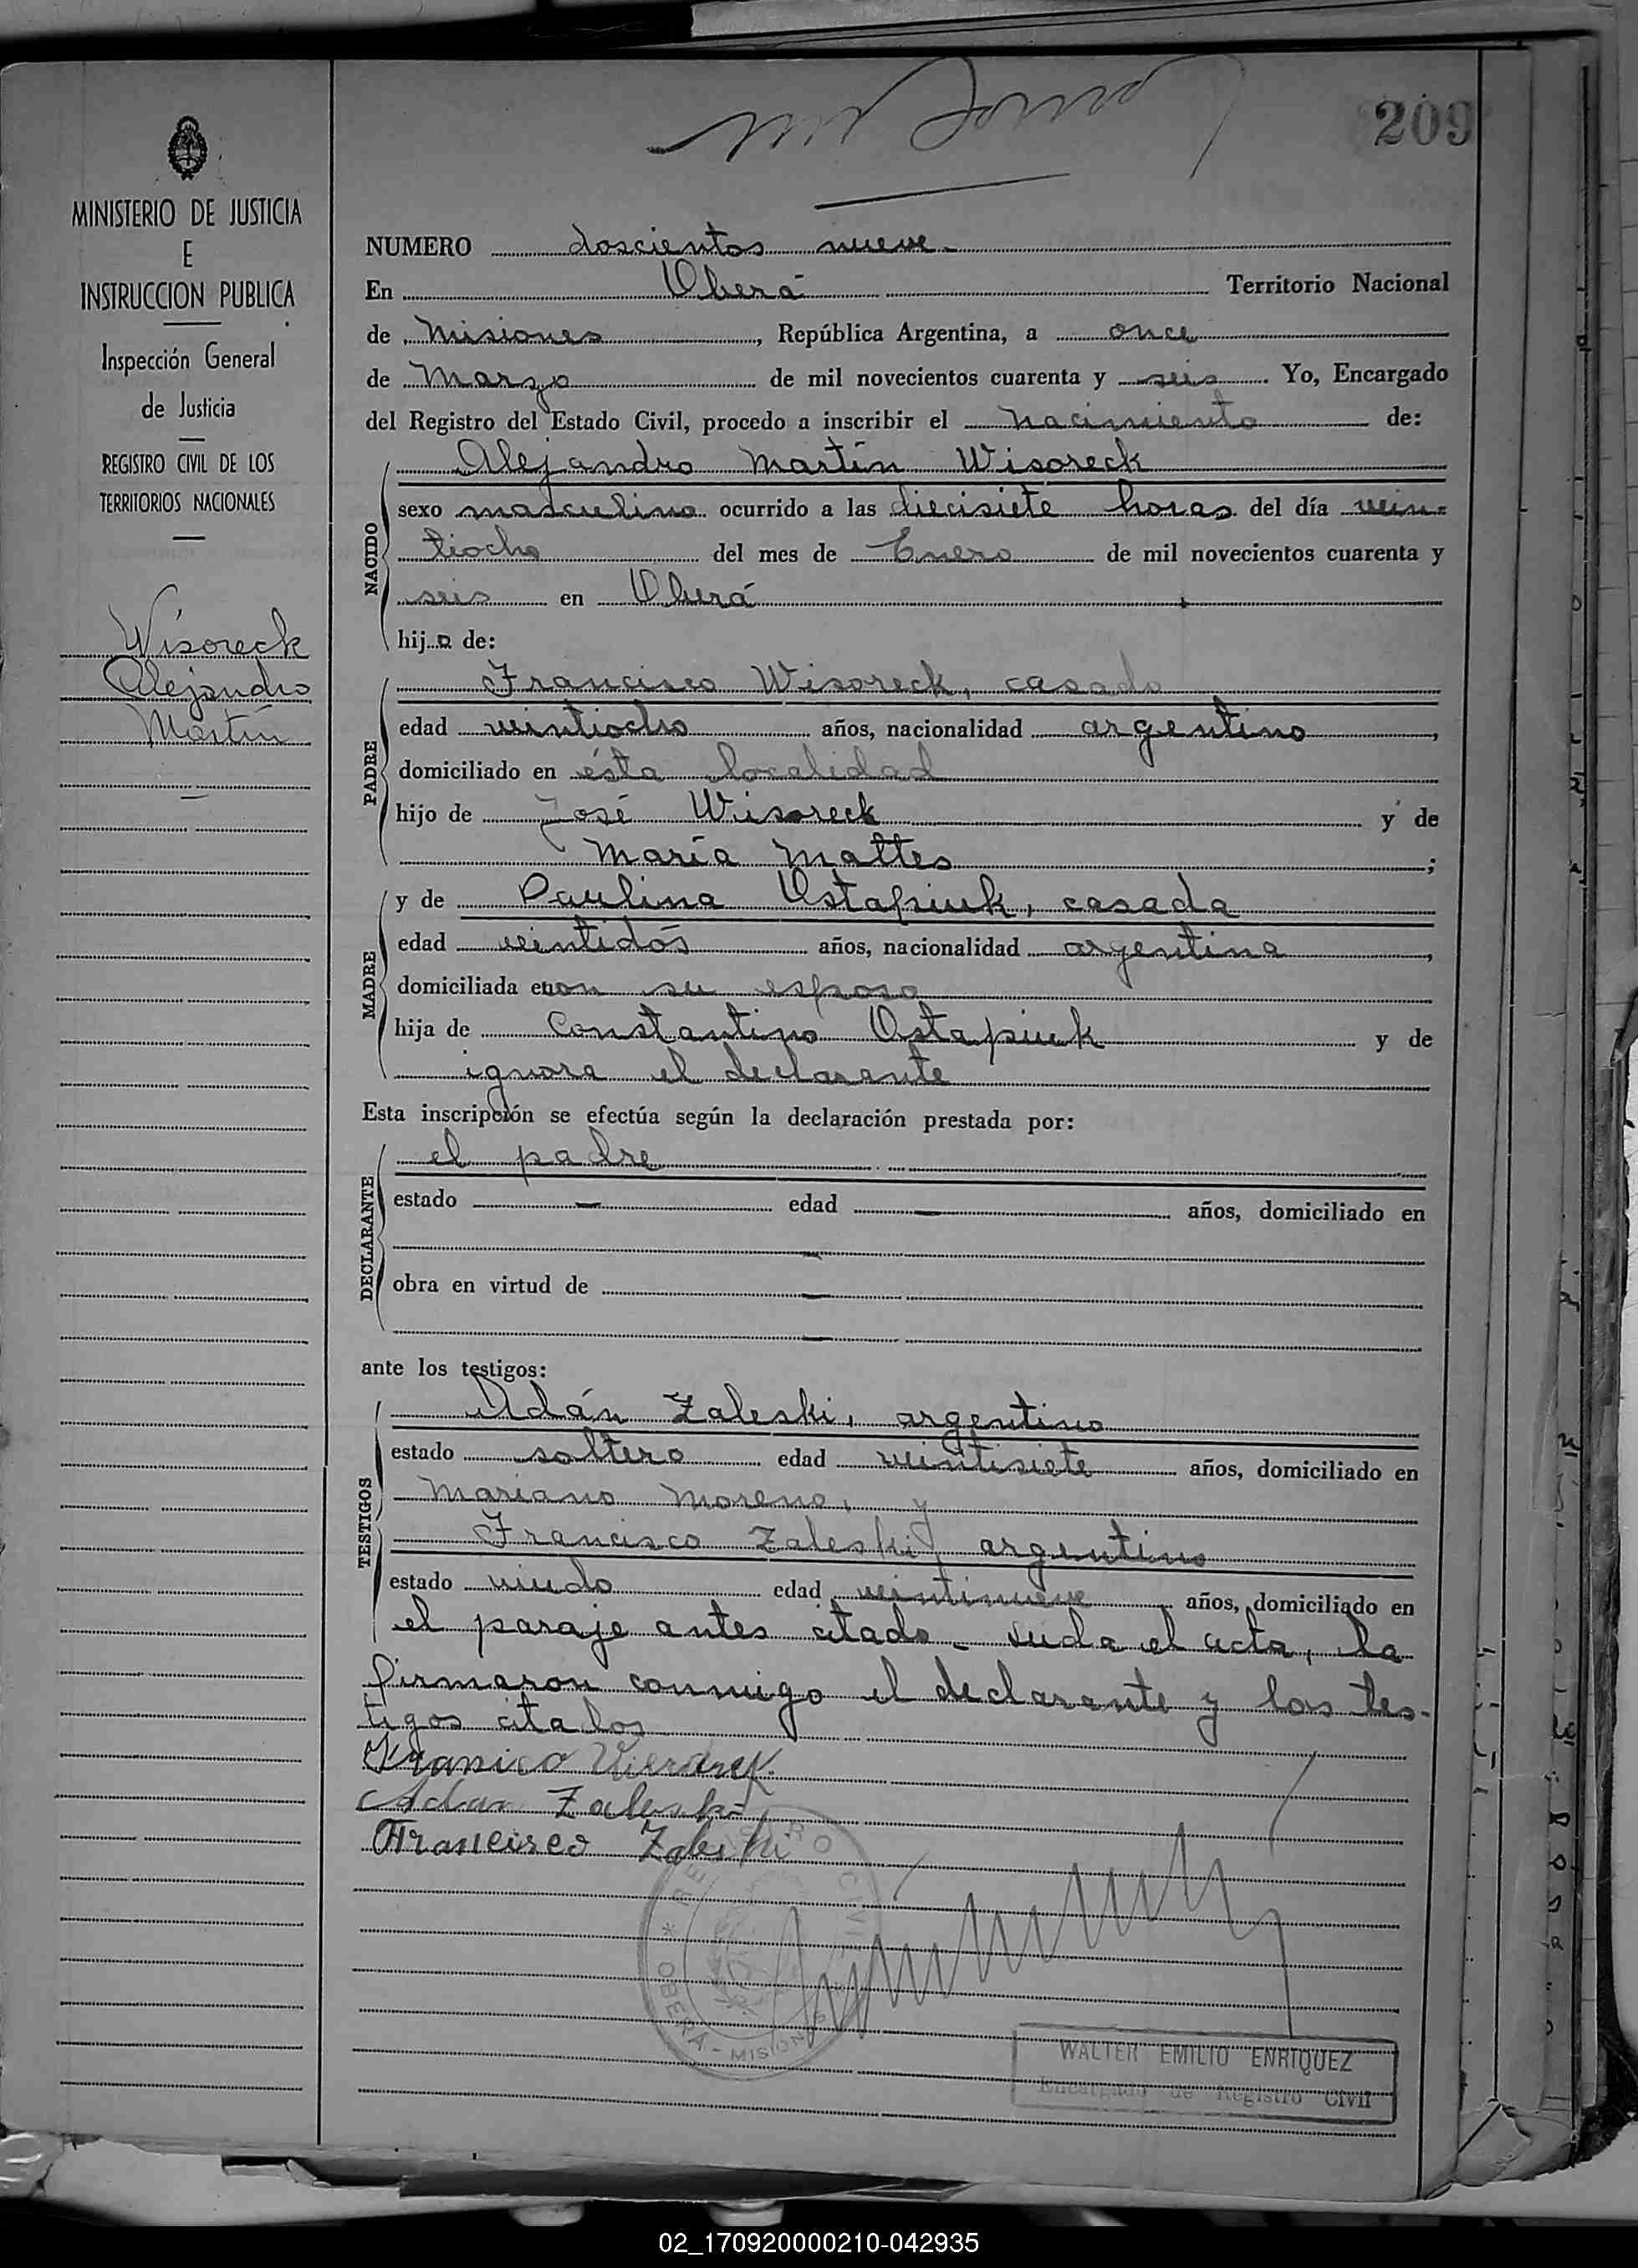 209
MINISTERIO DE JUSTICIA
E
INSTRUCCION PUBLICA
Inspección General
de Justicia
REGISTRO CIVIL DE LOS
TERRITORIOS NACIONALES
Wisoreck
Alejandro
Martín
NUMERO doscientos nueve-
En Oberá Territorio Nacional
de Misiones, República Argentina, a once
de Marzo de mil novecientos cuarenta y seis. Yo, Encargado
del Registro del Estado Civil, procedo a inscribir el nacimiento de:
NACIDO
Alejandro Martín Wisoreck
sexo masculino ocurrido a las diecisiete horas del día vein-
tiocho del mes de Enero de mil novecientos cuarenta y
seis en Oberá
hijo de:
PADRE
Francisco Wisoreck, casado
edad veintiocho años, nacionalidad argentino,
domiciliado en ésta localidad
hijo de José Wisoreck y de
María Maltes;
MADRE
y de Paulina Ostapiuk, casada
edad veintidós años, nacionalidad argentina,
domiciliada con su esposo
hija de Constantino Ostapiuk y de
ignora el declarante
Esta inscripción se efectúa según la declaración prestada por:
DECLARANTE
el padre
estado - edad - años, domiciliado en
-
obra en virtud de -
-
ante los testigos:
TESTIGOS
Adán Zaleski, argentino
estado soltero edad veintisiete años, domiciliado en
Mariano Moreno, y
Francisco Zaleski, argentino
estado viudo edad veintinueve años, domiciliado en
el paraje antes citado - Leída el acta, la
firmaron conmigo el declarante y los tes-
tigos citados
Adan Zaleski
Francisco Zaleski
REGISTRO CIVIL
* OBERÁ - MISIONES
WALTER EMILIO ENRIQUEZ
Encargado de Registro Civil
02_170920000210-042935